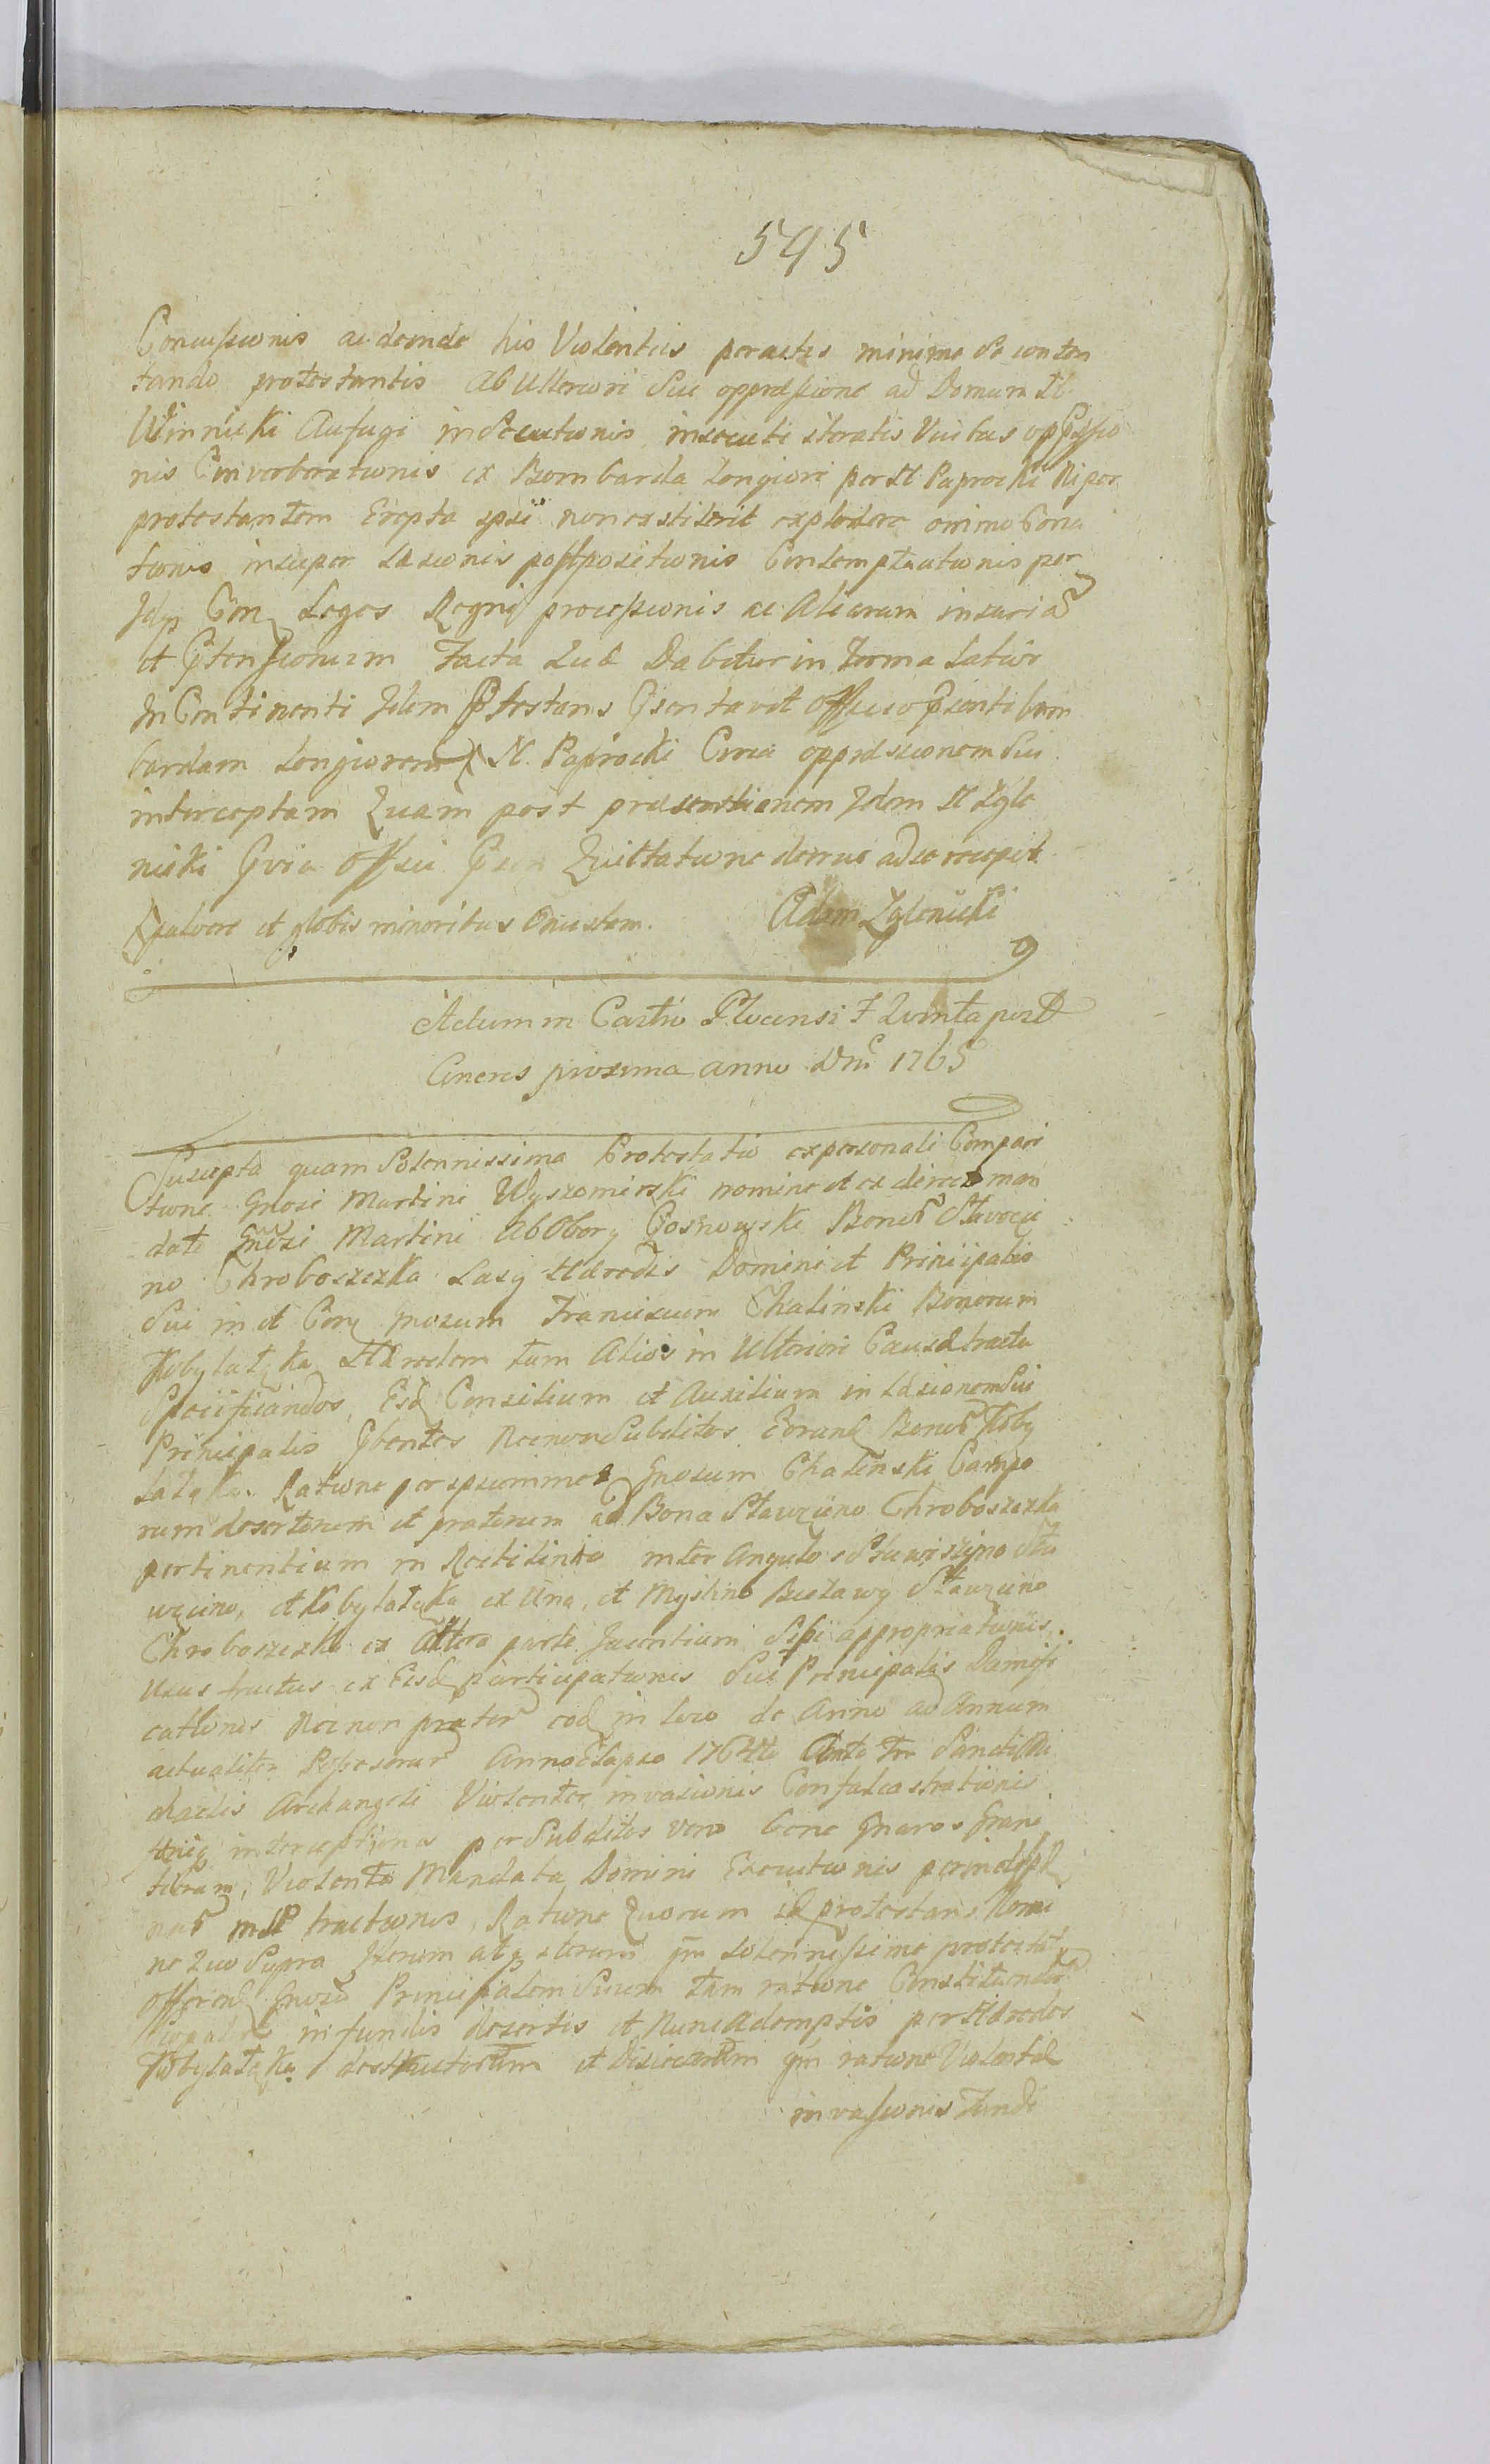 595
Concussionis ac deinde his Violentiis peractis minime se conten
tando protestantis ab Ulteriori sui oppressione ad Domum M
Winnicki Aufugi insecutionis insecuti iteratis Vicibus opp̃ssio
nis Converberationis ex Bombarda Longiori per M Paprocki Ni per
protestantem Erepta ipsi non extiterit explodere omimo Cona
tionis insuper Læsionis postpositionis Contemptuationis per
Idq Con Leges Regni processionis ac Aliarum iniuria
et P̃tensionum Facta Lud Dabitur in Forma Latior
In Continenti Idem P̃testans P̃sentavit Officio p̃senti bom
bardam Longiorem M. Paprocki Circa oppressionem Sui
interceptam Quam post præsentionem Idem M Zgle
nicki P̃via Officii P̃sen Quittatione denuo ad se recepit
pulvere et globis minoribus Onustam. Adam Zglenicki
Actum in Castro Plocensi F Quinta post
Cineres proxima anno Dni 1765
Suscepta quam Solennissima Protestatio ex personali Compari
tione Gnosi Martini Wyszomirski nomine et ex directo man
dato Gnosi Martini Ab Obory Gosnowski Bonor Stawozy
no Chroboszezka Lasy Hæredis Domini et Principalis
Sui in et Con Gnosum Franciscum Chalinski Bonorum
Kobylatka Hæredem tum Alios in Ulteriori Causæ tractu
Specificandos, Eisd Consilium et Auxilium in Læsionem Sui
Principalis P̃bentes Necnon Subditos Eorund Bonor Koby
latka. Ratione per ipsummet Gnosum Chalinski Campo
rum desertorum et pratorum ad Bona Stawzyno Chroboszezka
pertinentium in Rectilinio inter Angulos Stawiszyno Sta
wzino, et Kobylatka ex Una, et Myslino Bielawy Stawzino
Chroboszezka ex Altera parte Jacentium Sibi appropriationis,
Usus fructus ex Eisd participationis Sui Principalis Damnifi
cationis Necnon prator eod in Loco de Anno ad Annum
actualiter Possessor Anno Elapso 1764to Ante Fer Sancti Mi
chaelis Archangeli Violenter invasionis Confalcastrationis
Fniq interceptionis per Subditos vero bene Gnaros Grani
tierum, Violenta Mandata Domini Executionis perinde
tractionis, Ratione Quorum Id protestans Nomi
ne Quo Supra Iterum atq iterum q̃m Solennissime protestat
Offerend Gnosum Principalem Suum tam ratione Constitutionis
in fundis desertis et Nunc Ademptis per Hæredes
Kobylatka destructorum et Disiectorum q̃m ratione Violentæ
invasionis Fundi